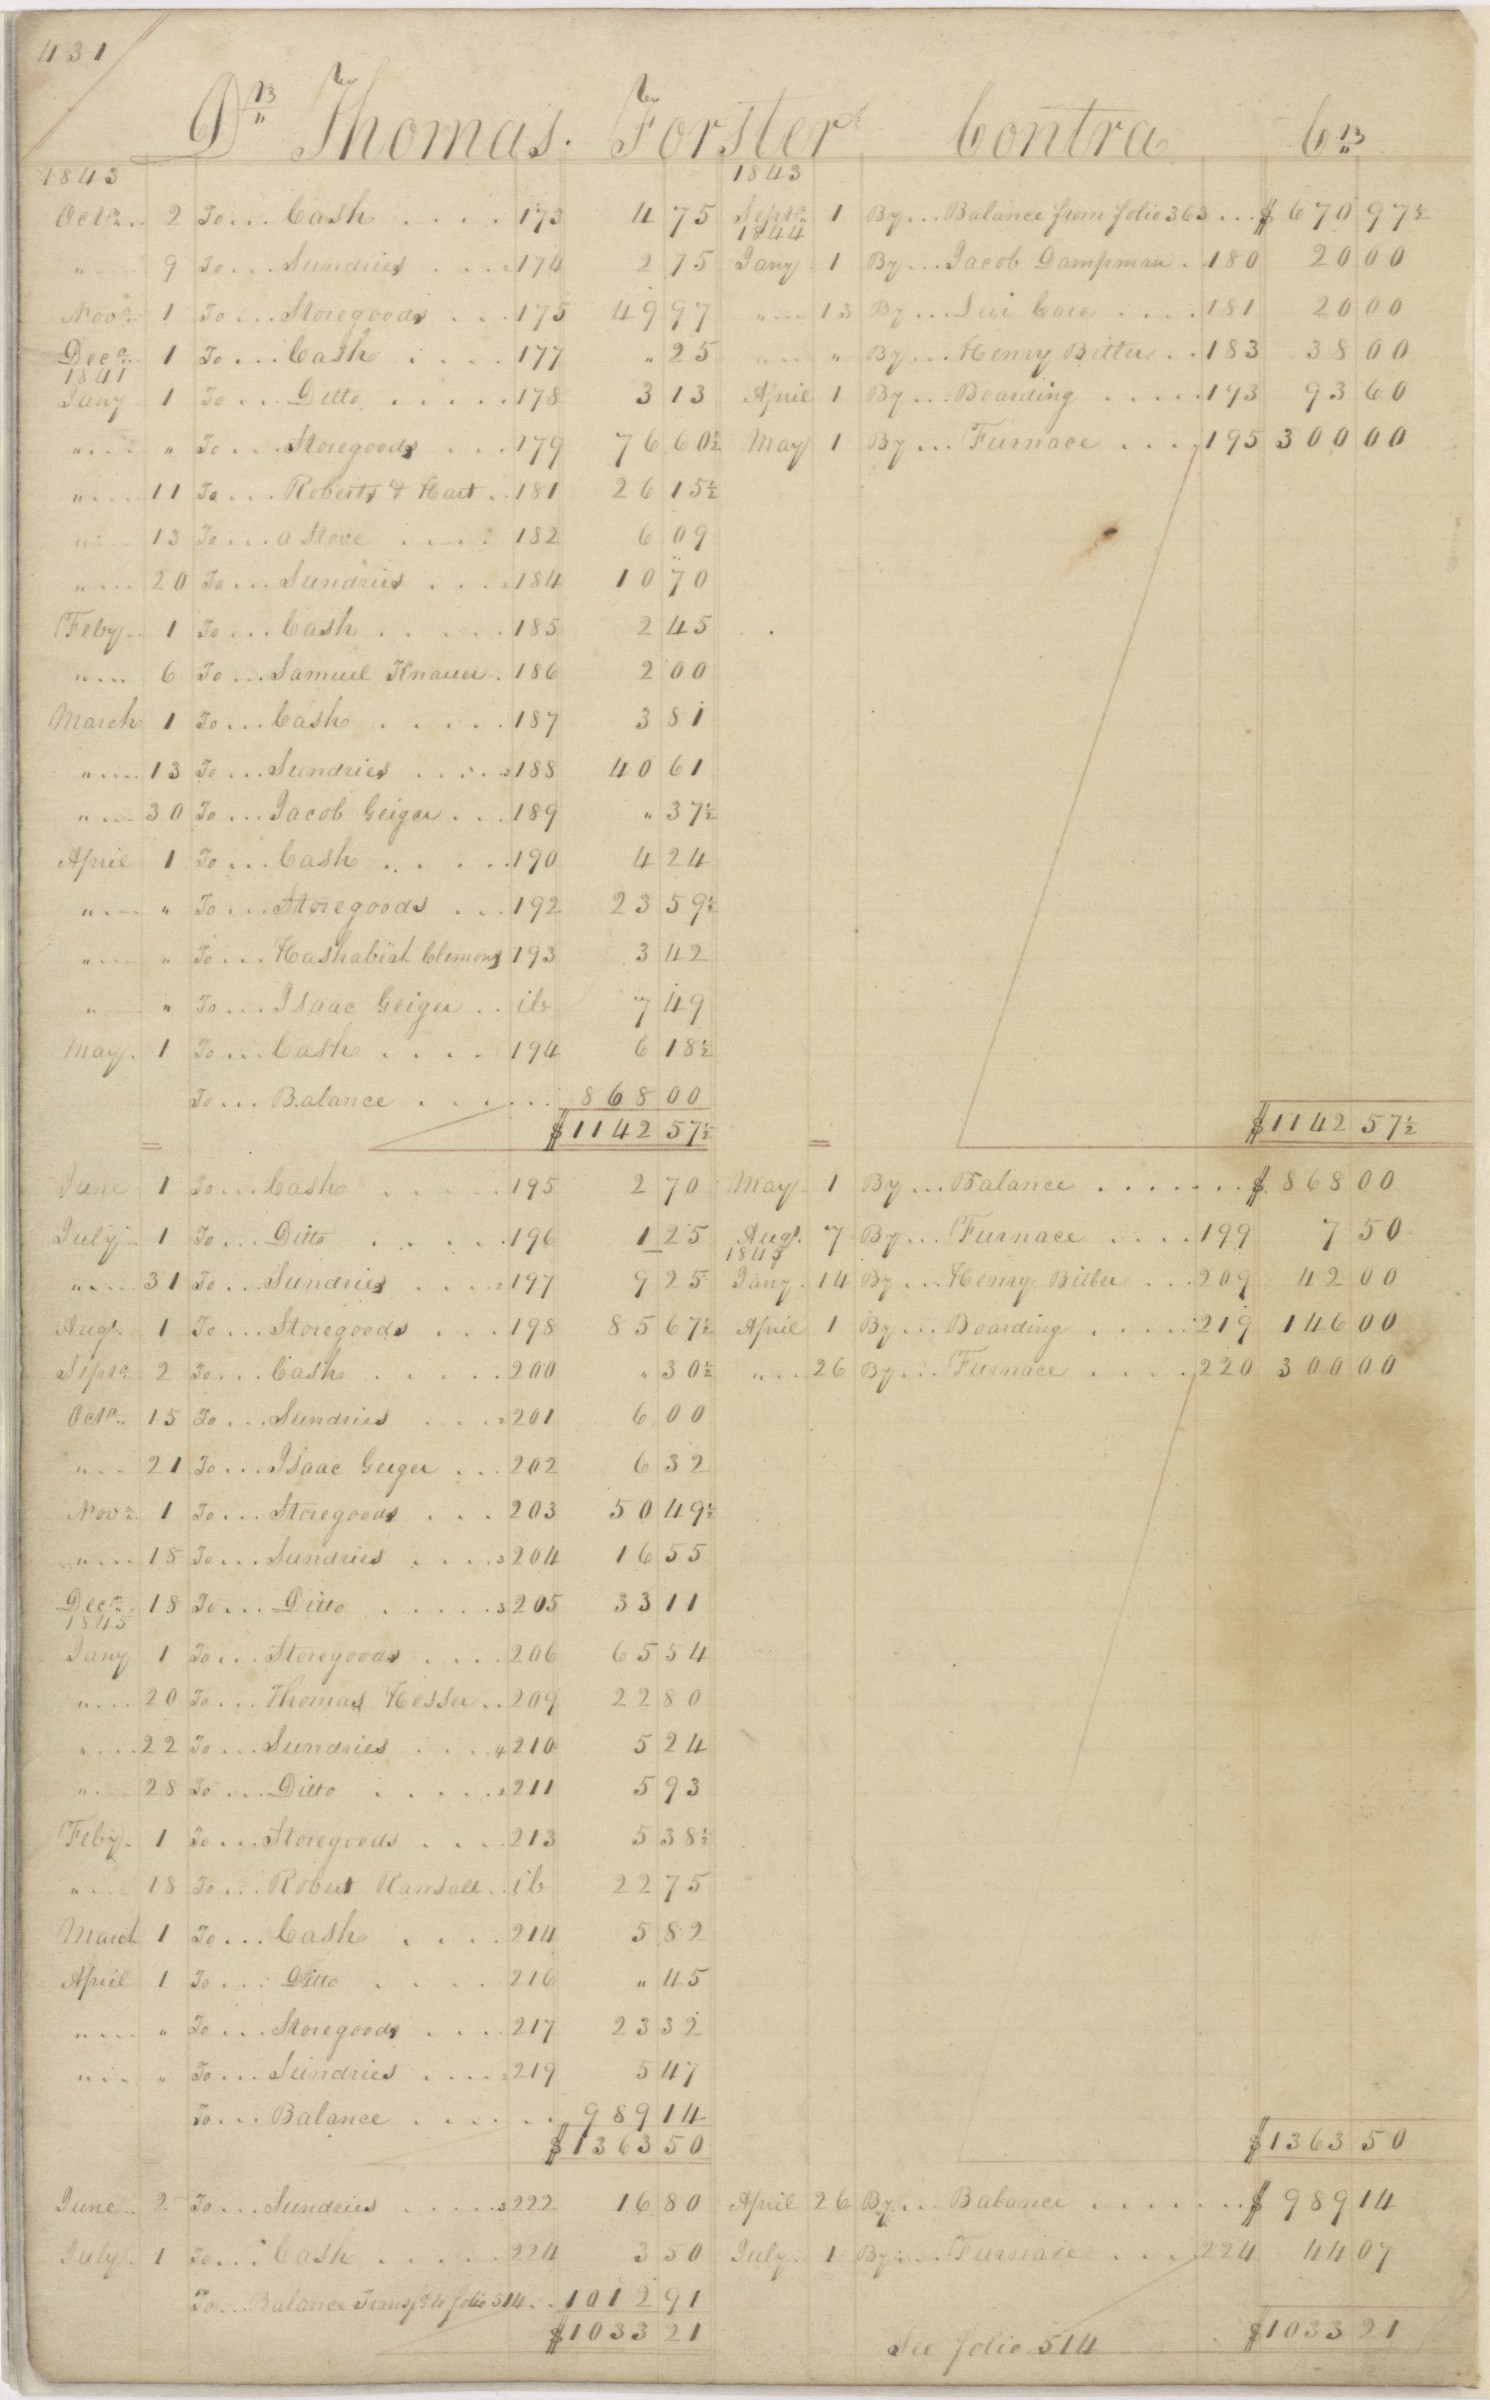 431
Dr. Thomas Forster Contra Cr.
1843 1843
Octr. 2 To Cash 173 4 75 Septr. 1 By Balance from folio 363 $ 670 97½
1844
" 9 To Sundries 174 2 75 Jany 1 By Jacob Dampman 180 20 00
Novr. 1 To Storegoods 175 49 97 " 13 By Levi Care 181 20 00
Decr. 1 To Cash 177 " 25 " " By Henry Bitler 183 38 00
1841
Jany 1 To Ditto 178 3 13 April 1 By Boarding 193 93 60
" " To Storegoods 179 76 60½ May 1 By Furnace 195 300 00
" 11 To Roberts & Hart 181 26 15½
" 13 To a Stove 182 6 09
" 20 To Sundries 184 10 70
Feby 1 To Cash 185 2 45
" 6 To Samuel Knauer 186 2 00
March 1 To Cash 187 3 81
" 13 To Sundries 188 40 61
" 30 To Jacob Geiger 189 " 37½
April 1 To Cash 190 4 24
" " To Storegoods 192 23 59½
" " To Hashabiah Clemons 193 3 42
" " To Isaac Geiger ib 7 49
May 1 To Cash 194 6 18½
To Balance 868 00
$1142 57½ $1142 57½
June 1 To Cash 195 2 70 May 1 By Balance $ 868 00
July 1 To Ditto 196 1 25 Augt. 7 By Furnace 199 7 50
1845
" 31 To Sundries 197 9 25 Jany 14 By Henry Bitler 209 42 00
Augt. 1 To Storegoods 198 85 67½ April 1 By Boarding 219 146 00
Septr. 2 To Cash 200 " 30½ " 26 By Furnace 220 300 00
Octr. 15 To Sundries 201 6 00
" 21 To Isaac Geiger 202 6 32
Novr. 1 To Storegoods 203 50 49½
" 18 To Sundries 204 16 55
Decr. 18 To Ditto 205 33 11
1845
Jany 1 To Storegoods 206 65 54
" 20 To Thomas Kesler 209 22 80
" 22 To Sundries 4 210 5 24
" 28 To Ditto 211 5 93
Feby 1 To Storegoods 213 5 38½
" 18 To Robert Ransall ib 22 75
March 1 To Cash 214 5 82
April 1 To Ditto 216 " 45
" " To Storegoods 217 23 32
" " To Sundries 219 5 47
To Balance 989 14
$1363 50 $1363 50
June 2 To Sundries 3 222 16 80 April 26 By Balance $ 989 14
July 1 To Cash 224 3 50 July 1 By Furnace 224 44 07
To Balance Transfr. to folio 514 1012 91
$1033 21 See folio 514 $1033 21